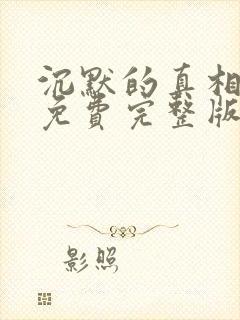 沉默的真相
免费完整版
影照